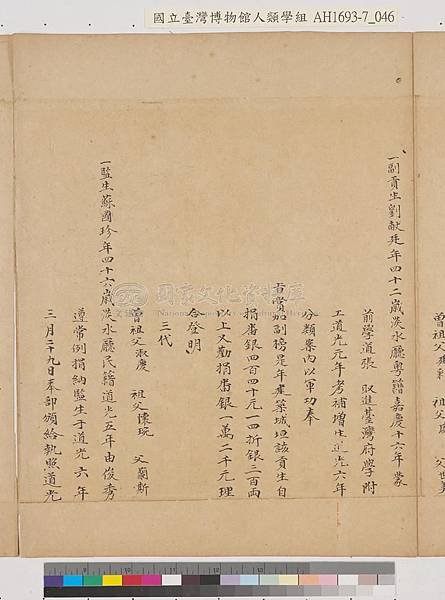 國立臺灣博物館人類學組 AH1693-7_046
曾祖父 祖父 父世
一副貢生劉獻廷年四十二歲淡水廳粵籍嘉慶十六年蒙
前學道張 取進臺灣府學附
工道光元年考補增生道光六年
分類案內以軍功奉
旨賞加副榜是年建築城垣該貢生自
捐番銀四百四十元一四折銀三百兩
以上又勸捐番銀一萬二千元理
合登明
三代
曾祖父淑慶 祖父懷琬 父蘭斯
一監生蘇國珍年四十六歲淡水廳民籍道光五年由俊秀
遵常例捐納監生于道光六年
三月二十九日奉部頒給執照道光
國家文化資料庫